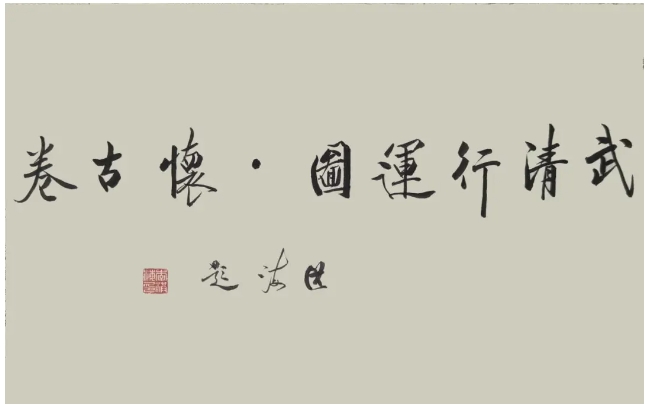 武清行運圖·懷古卷
海題